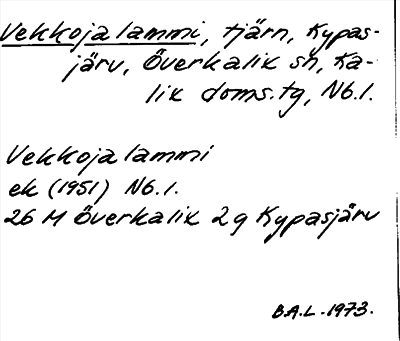 Vekkojalammi, tjärn, Kypas-
järv, Överkalik sn, Ka-
lik doms.tg, Nb.l.
Vekkojalammi
ek (1951) Nb.l.
26 M Överkalik 2g Kypasjärv
B.A.L. 1973.